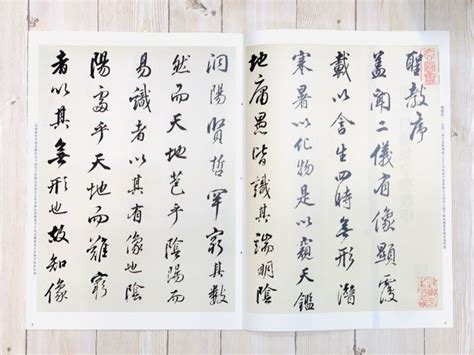 聖教序
蓋聞二儀有像顯覆
載以含生四時無形潛
寒暑以化物是以窺天鑑
地庸愚皆識其端明陰
洞陽賢哲罕窮其數
然而天地苞乎陰陽而
易識者以其有像也陰
陽處乎天地而難窮
者以其無形也故知像